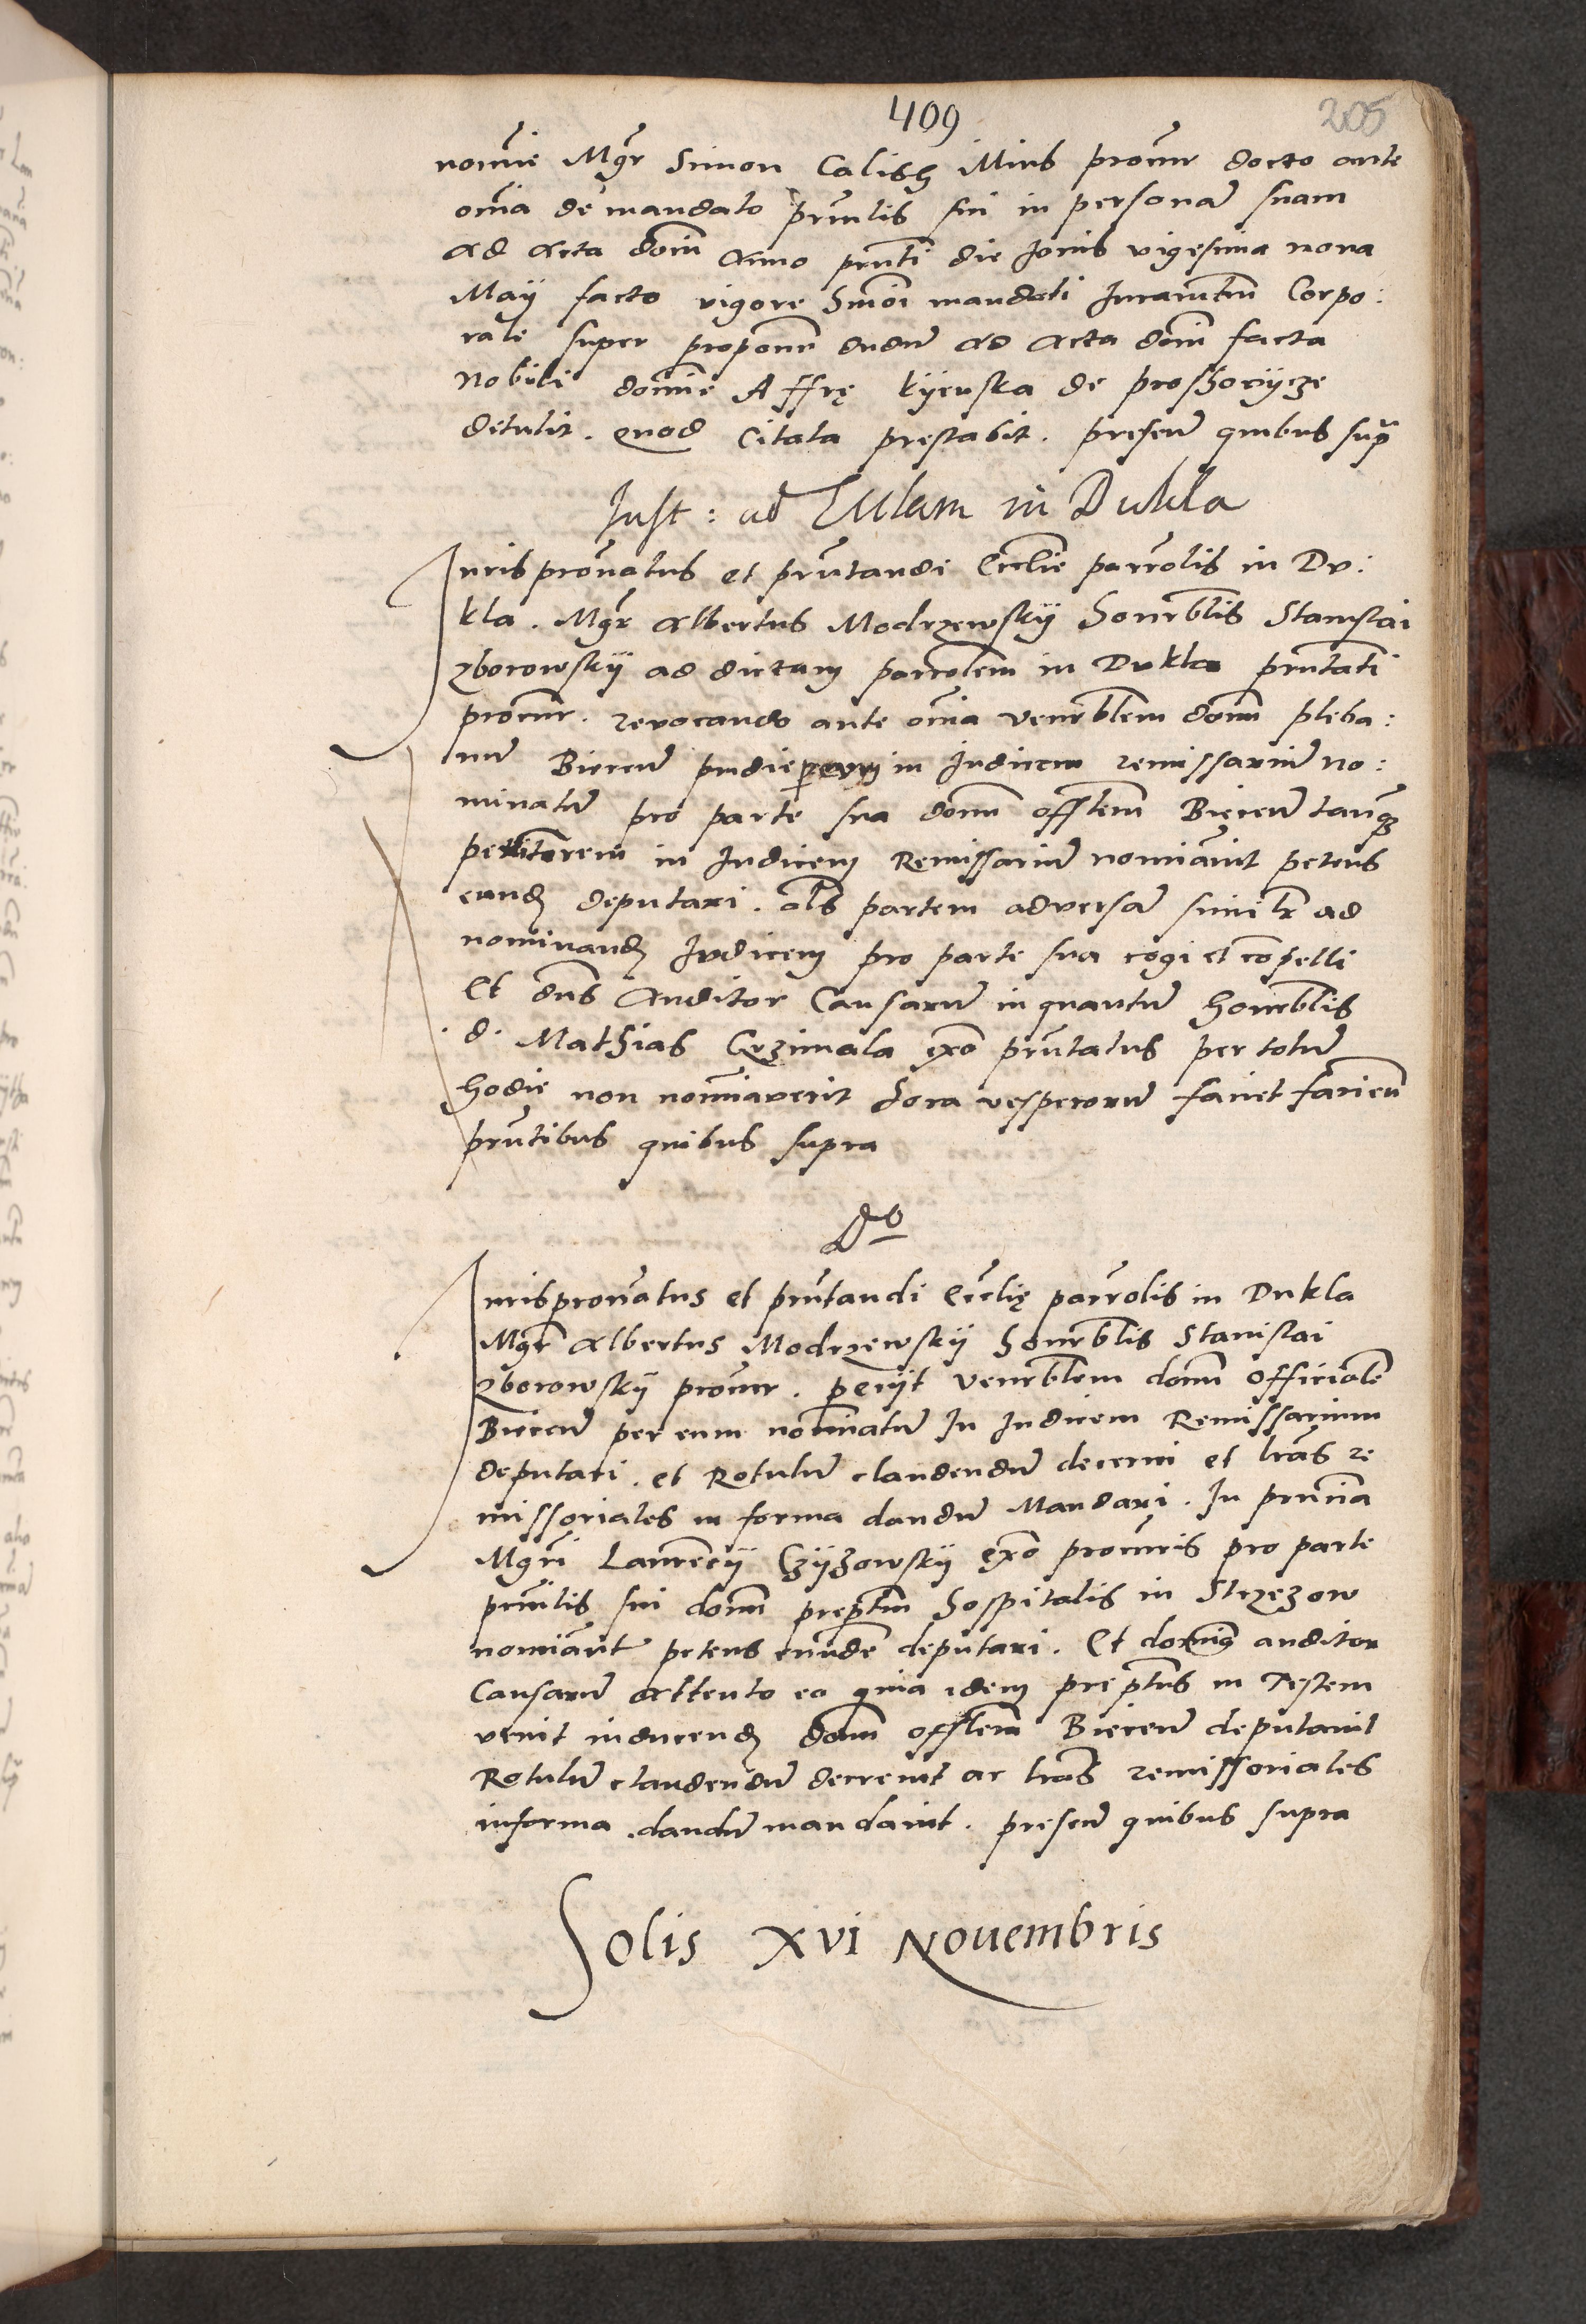 409
205
nomie Mgr Simon Calissz procur docto ante
omia de mandato prinlis sui in persona suam
ad acta dom Anno prnti die Jovis vigesima nona
Maij facto vigore Smoi mandati Juramtm Corpo:
rale super proponem dudu ad acta dom facta
Nobili domine Affrę Kijenska de
detulit. quod Citata prestabit. presen quibus supra
Inst: ad in Dukla
Juris pronatus et prntandi Ecclie parrolis in Du:
kla. Mgr Albertus Modrzewskij honrblis Stanislai
Zborowskij ad dictam parrolem in Dukla prntati
procur. revocando ante omia venrblem domm pleba:
nu Biecen pridie per eum in Judicem remissariu no:
minatu pro parte sua domm offlem Biecen tanq
petitorem in Judicem Remissariu nomiavit petens
eund deputari. als partem adversa similr ad
nominand Judicem pro parte sua cogi et copelli
Et dns Auditor Causaru in quantu honrblis
d. Mathias Grzimala exo prntatus per totu
hodie non nomiaverit hora vesperoru faciet facien
prntibus quibus supra
Jurispronatus et prntandi Ecclię parrolis in Dukla
Mgr Albertus Modrzewskij honrblis Stanislai
Zborowskij procur. petijt venrblem domm Officiale
Biecen per eum nominatu In Judicem Remissarium
deputari. et Rotulu claudendu decerni et lras re
missoriales in forma dandu Mandari. In prntia
Mgri Laurecij Czijzowskij exo procuris pro parte
prinlis sui domm preptm hospitalis in Strzezow
nomiavit petens eunde deputari. Et dominus auditor
Causaru attento eo quia idem preptus in Testem
venit inducend domm offlem Biecen deputavit
Rotulu claudendu decrevit ac lras remissoriales
informa dandu mandavit. presen quibus supra
Solis XVI Novembris